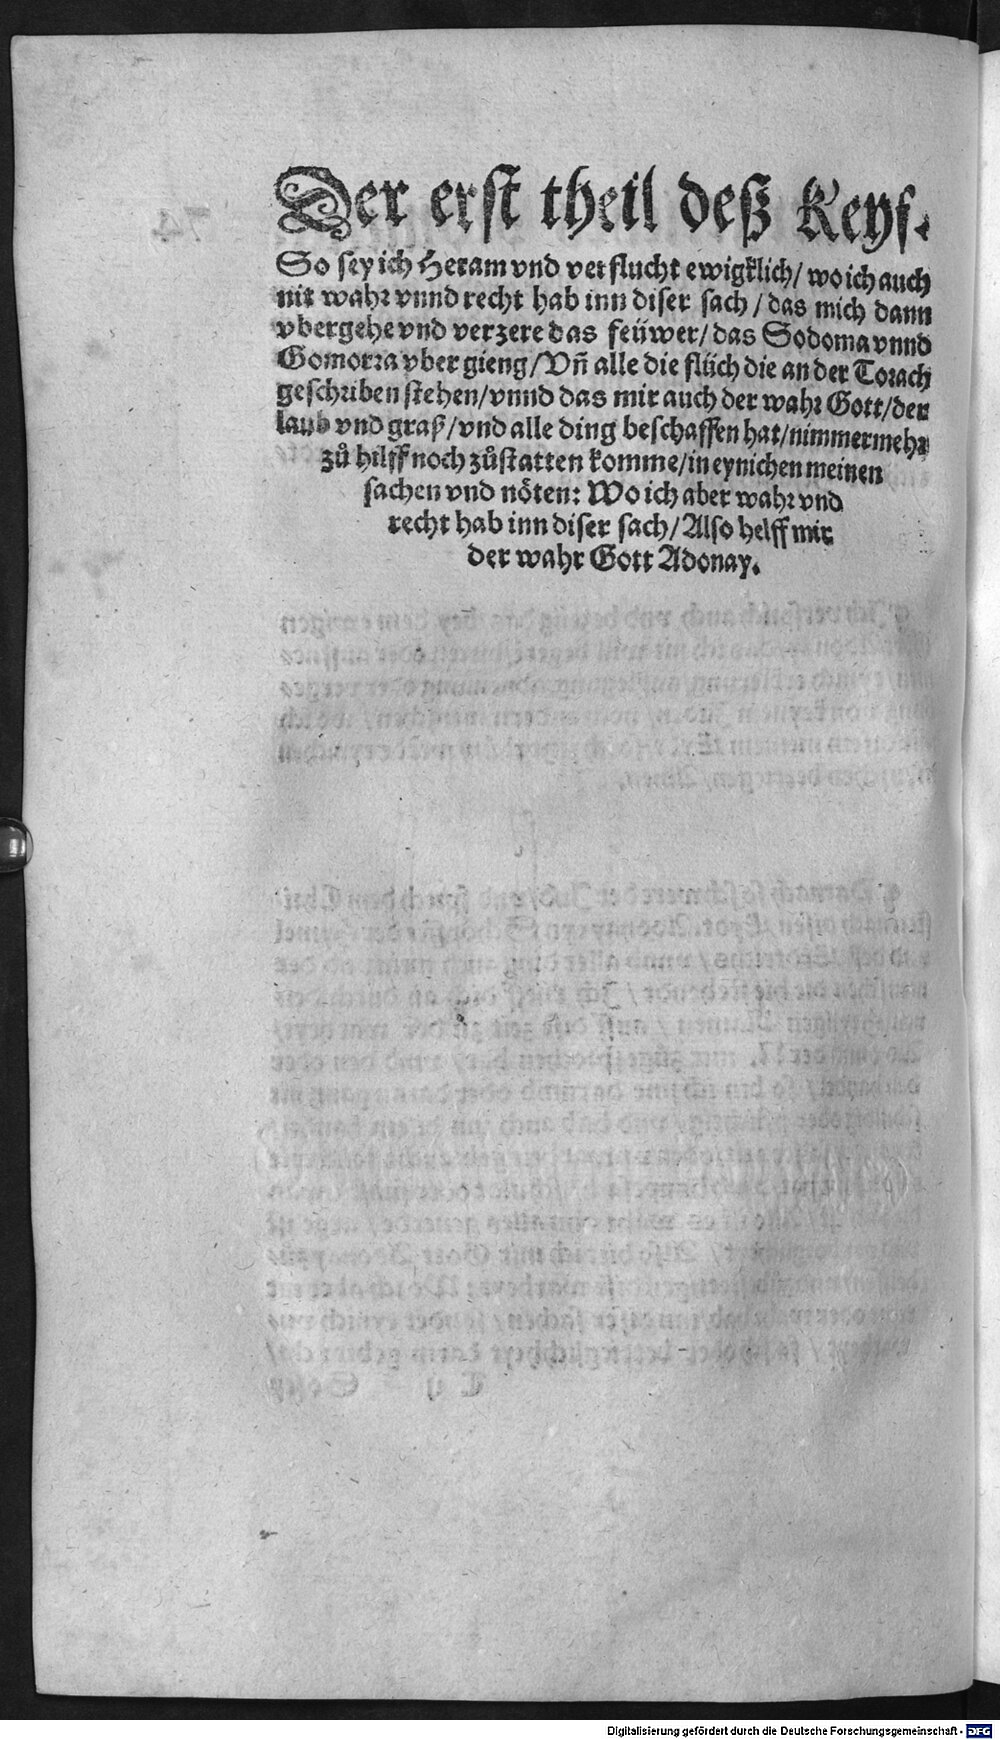 Der erst theil deß Keys.
So sey ich Heram vnd verflucht ewigklich/ wo ich auch
nit wahr vnnd recht hab inn diser sach/ das mich dann
vbergehe vnd verzere das feüwer/ das Sodoma vnnd
Gomorra vber gieng/ Vñ alle die flüch die an der Torach
geschriben stehen/ vnnd das mir auch der wahr Gott/ der
laub vnd graß/ vnd alle ding beschaffen hat/ nimmermehr
zů hilff noch zůstatten komme/ in eynichen meinen
sachen vnd nöten: Wo ich aber wahr vnd
recht hab inn diser sach/ Also helff mir
der wahr Gott Adonay.
Digitalisierung gefördert durch die Deutsche Forschungsgemeinschaft - DFG